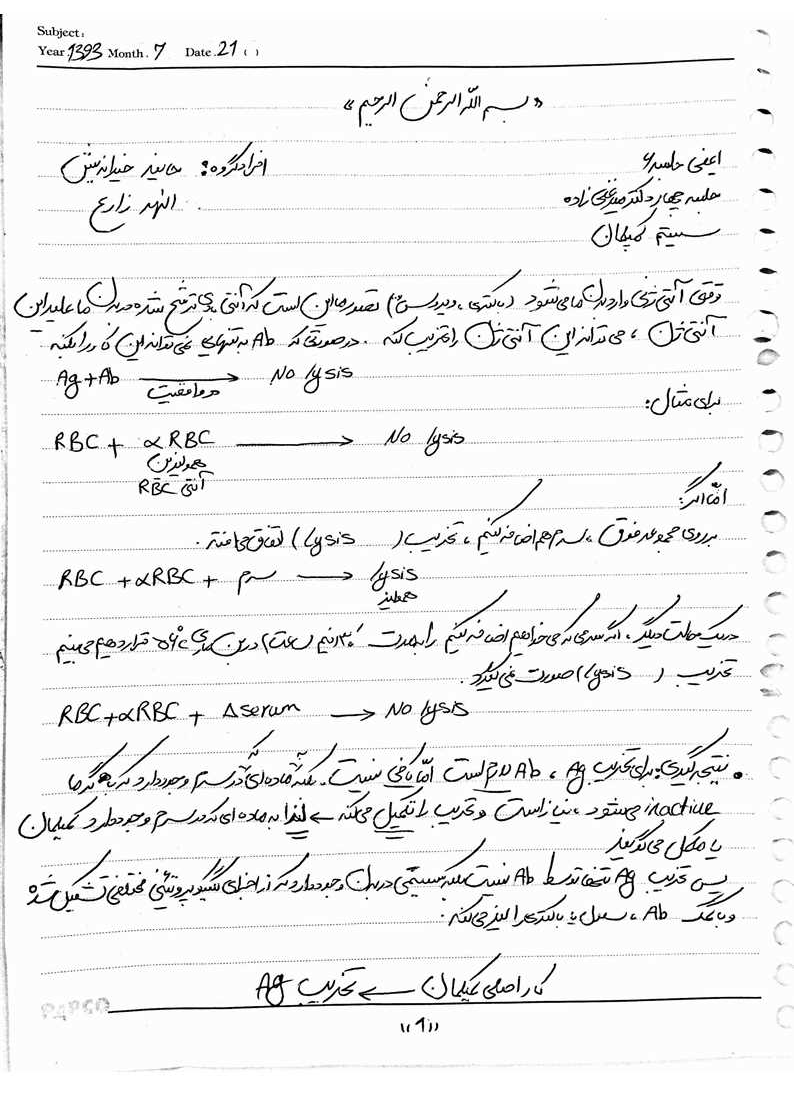 Subject:
Year. 1393 Month. 7 Date. 21 ( )
« بسم الله الرحمن الرحیم »
ایمنی جلسه ۶ افراد گروه:
جلسه چهارم دکتر میرغنی زاده الهه زارع
سیستم کمپلمان
وقتی آنتی ژنی وارد بدن ما می‌شود (باکتری، ویروس) تصور ما این است که آنتی بادی ترشح شده در بدن ما علیه این
آنتی ژن، می تواند این آنتی ژن را تخریب کند. در صورتی که Ab به تنهایی نمی تواند این کار را بکند
Ag + Ab ⟶ در واقعیت No lysis
برای مثال:
RBC + αRBC ⟶ No lysis
همولیزین
آنتی RBC
اما اگر:
بر روی مجموعه فوق، سرم هم اضافه کنیم، تخریب (Lysis) اتفاق می افتد.
RBC + αRBC + سرم ⟶ lysis
همولیز
در یک حالت دیگر، اگر سرمی که می خواهیم اضافه کنیم را به مدت ۳۰' (نیم ساعت) در بن ماری ۵۶°c قرار دهیم می بینیم
تخریب (lysis) صورت نمی گیرد.
RBC + αRBC + Δserum ⟶ No lysis
• نتیجه گیری: برای تخریب Ag، Ab لازم است اما کافی نیست. بلکه به ماده ای که در سرم وجود دارد که با گرما
inactive می شود، نیاز است و تخریب را تکمیل می کند ← لذا به ماده ای که در سرم وجود دارد کمپلمان
یا مکمل می گویند
پس تخریب Ag فقط توسط Ab نیست بلکه سیستمی در بدن وجود دارد که از اجزای گلیکوپروتئینی مختلفی تشکیل شده
و با کمک Ab، سلول یا باکتری را لیز می کند.
کار اصلی کمپلمان ← تخریب Ag
PAPCO
«1»